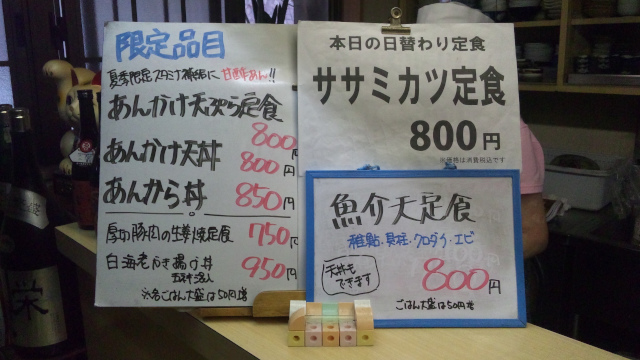 限定品目
夏季限定スタミナ補給に 甘酢あん!!
あんかけ天ぷら定食
800円
あんかけ天丼
800円
あんから丼 850円
厚切豚肉の生姜焼定食 750円
白海老かき揚げ丼 950円
※各ごはん大盛は50円増
本日の日替わり定食
ササミカツ定食
800円
※価格は消費税込です
魚介天定食
稚鮎・貝柱・クロダイ・エビ
天丼も
できます
800円
ごはん大盛は50円増
栄